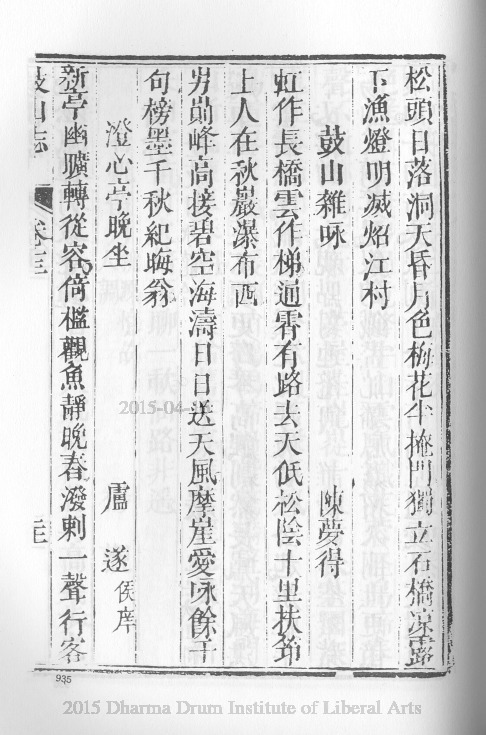 松頭日落洞天昏月色梅花半掩門獨立石橋凉露
下漁燈明滅炤江村
鼓山雜咏 陳夢得
虹作長橋雲作梯通霄有路去天低松陰十里扶筇
上人在秋巖瀑布西
屴崱峰高接碧空海濤日日送天風摩崖愛咏餘干
句榜墨千秋紀晦翁
澄心亭晚坐 盧遂 侯席
新亭幽曠轉從容倚檻觀魚靜晚春潑剌一聲行客
鼓山志 卷十三
935
2015-04-
2015 Dharma Drum Institute of Liberal Arts